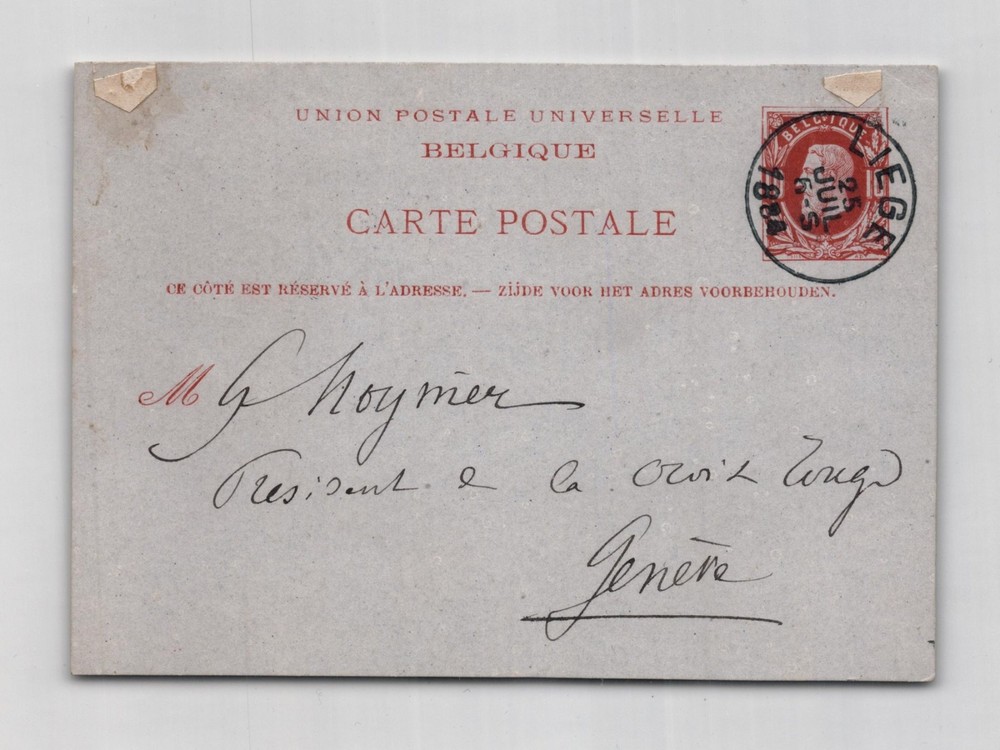 UNION POSTALE UNIVERSELLE
BELGIQUE
CARTE POSTALE
BELGIQUE
LIEGE
25
JUIL
6-S
1884
CE CÔTÉ EST RÉSERVÉ À L'ADRESSE. — ZIJDE VOOR HET ADRES VOORBEHOUDEN.
M G Moynier
Président de la Croix Rouge
Genève